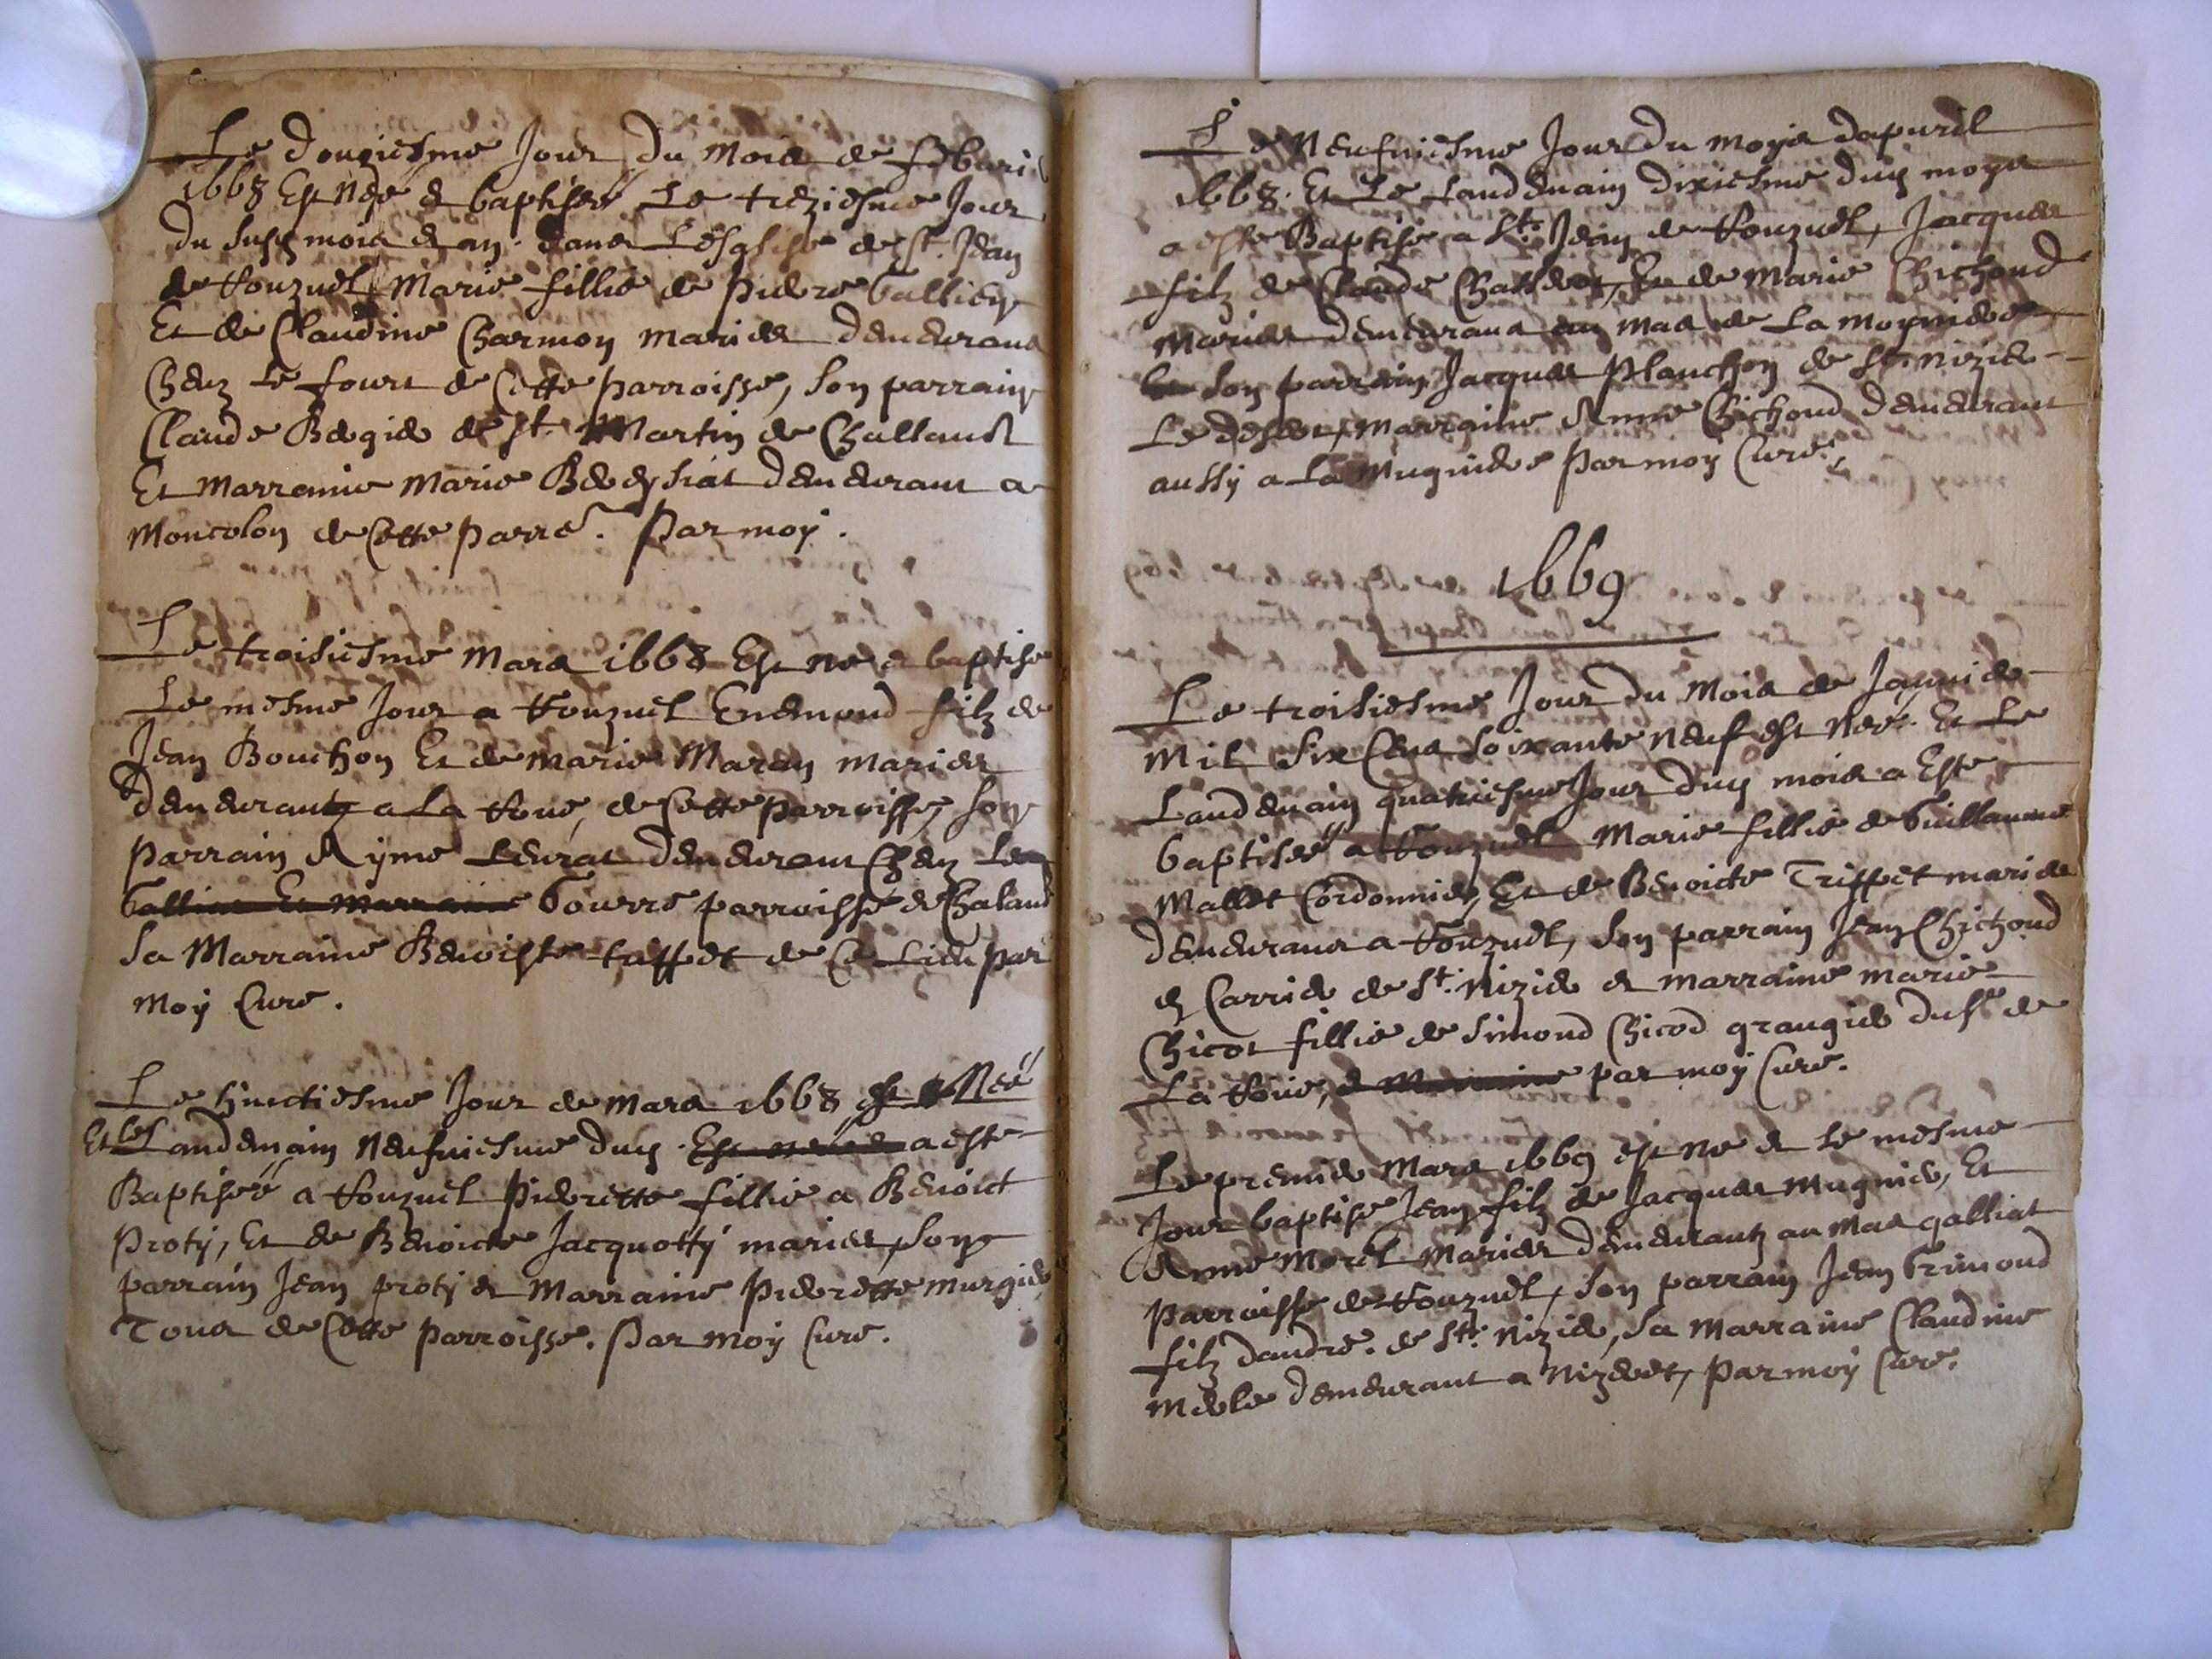 Le douziesme Jour du mois de febvrie
1668 Est Neé & baptiseé Le treziesme Jour
du susd mois & an. dans Lesglise de St. Jean
de Vouzuel, Marie fillie de pierre Gallien
Et de Claudine Charmon mariés demeurans
Chez le fourt de Cette parroisse, Son parrain
Claude Begie de St. Martin de Challand
Et marraine Marie demeurant a
Moncolon de Cette parre. par moy.
Le troisiesme Mars 1668 Est né & baptisé
Le mesme Jour a Vouzuel Enemond filz de
Jean Bouchon Et de marie mariés
demeurantz a La Voué, de Cette parroisse, son
parrain Ayme Leurat demeurant Chez Le
Gallien Et marraine Gourre parroisse de Chaland
Sa Marraine Benoiste taffet de Ce Lieu par
moy Curé.
Le huictiesme Jour de mars 1668 est Neé
Et Le Landemain neufuiesme duy a esté
Baptiseé a Vouzuel pierrette fillie a Benoict
proty, Et de Benoicte Jacquotty mariés, son
parrain Jean proty & Marraine pierrette murgie
Tous de Cette parroisse. par moy Curé.
Le Neufuiesme Jour du moys dapuril
1668. Et Le Landemain dixiesme duy moys
a esté Baptisé a St. Jean de Vouzuel, Jacques
filz de Claude Challet, Et de Marie Chichoud
mariés demeurans au mas de La
Son parrain Jacques planchon de St. nizie
Le desert, marraine Anne Chichoud demeurant
aussy a La Mugniere par moy Curé,
1669
Le troisiesme Jour du mois de Januie
mil six Cens soixante neuf est Neé. Et Le
Landemain quatriesme Jour duy mois a Esté
baptiseé a Vouzuel Marie fillie de Guillaume
Mallet Cordonnie, Et de Benoicte Triffet mariés
demeurans a Vouzuel, son parrain Jean Chichoud
& Carrie de St. Nizie & marraine marie
Chicot fillie de Simond Chicod grangie de
La Voue, & Marraine par moy Curé.
Le premie Mars 1669 est né & le mesme
Jour baptisé Jean filz de Jacques mugnie, Et
Anne Morel Mariés demeurantz au mas galliat
parroisse de Vouzuel, son parrain Jean Grimond
filz dandré. de St. nizie, sa marraine Claudine
merle demeurant a nizeret, par moy Curé.